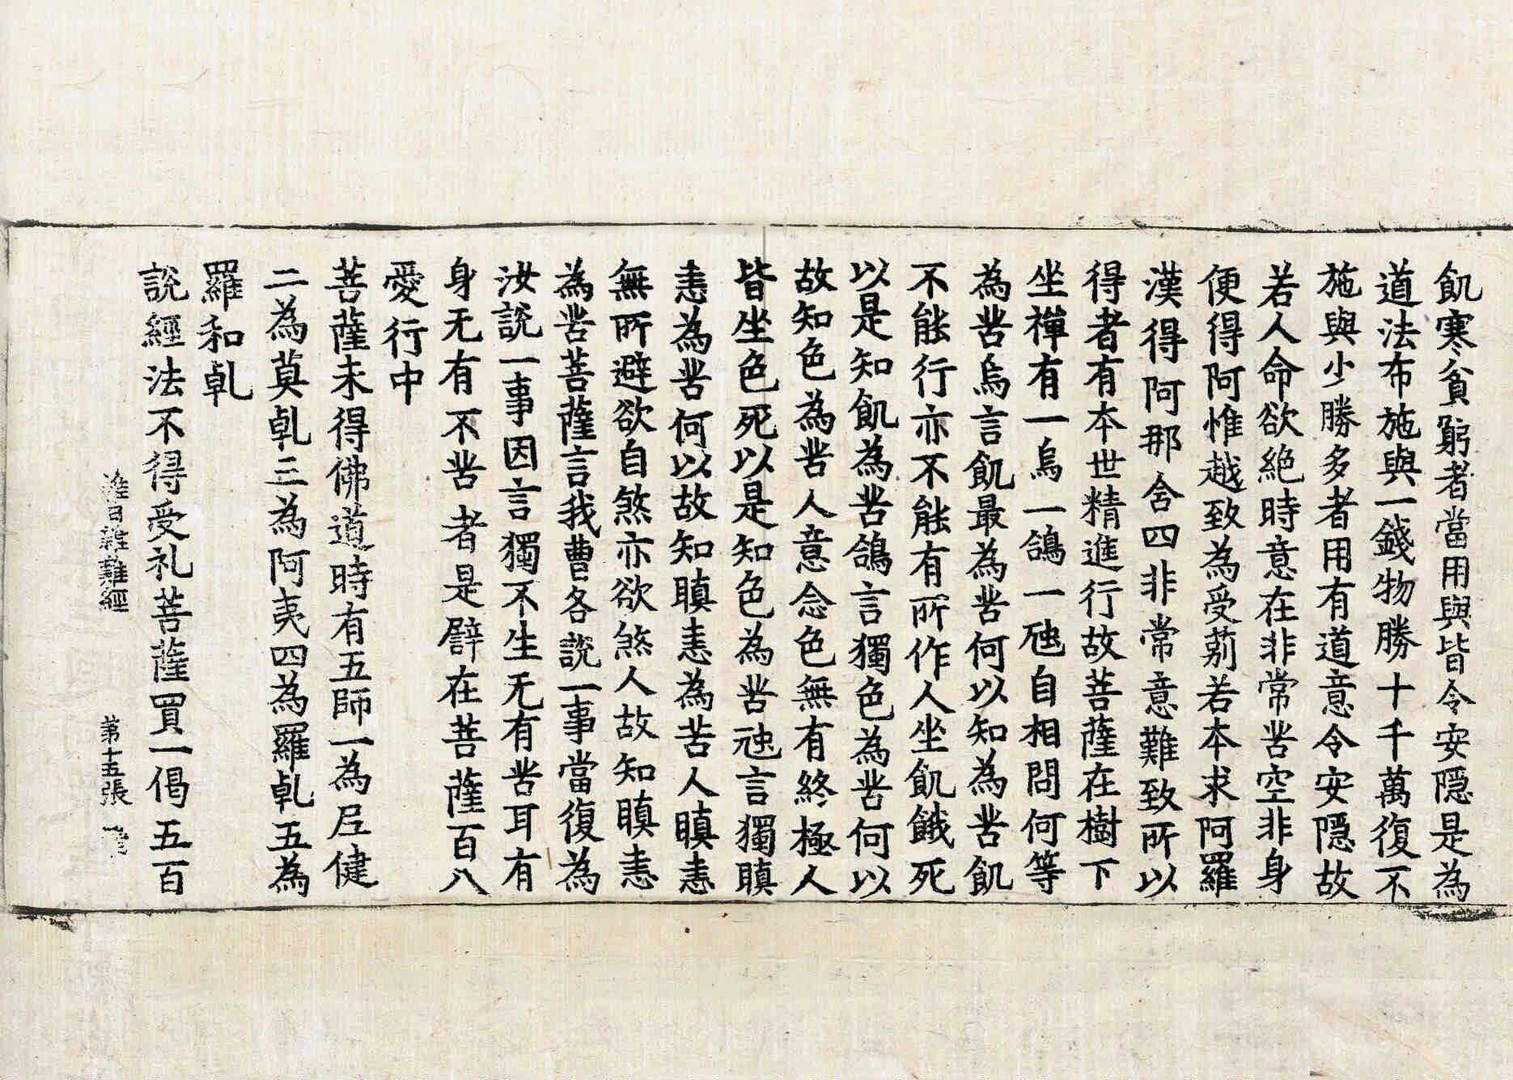 飢寒貧窮者當用與皆令安隱是為
道法布施與一錢物勝十千萬復不
施與少勝多者用有道意令安隱故
若人命欲絶時意在非常苦空非身
便得阿惟越致為受莂若本求阿羅
漢得阿那含四非常意難致所以
得者有本世精進行故菩薩在樹下
坐禪有一烏一鴿一虵自相問何等
為苦烏言飢最為苦何以知為苦飢
不能行亦不能有所作人坐飢餓死
以是知飢為苦鴿言獨色為苦何以
故知色為苦人意念色無有終極人
皆坐色死以是知色為苦虵言獨瞋
恚為苦何以故知瞋恚為苦人瞋恚
無所避欲自煞亦欲煞人故知瞋恚
為苦菩薩言我曹各説一事當復為
汝説一事因言獨不生无有苦耳有
身无有不苦者是譬在菩薩百八
愛行中
菩薩未得佛道時有五師一為㞐健
二為莫乹三為阿夷四為羅乹五為
羅和乹
説經法不得受礼菩薩買一偈五百
惟曰雜難經 第十五張